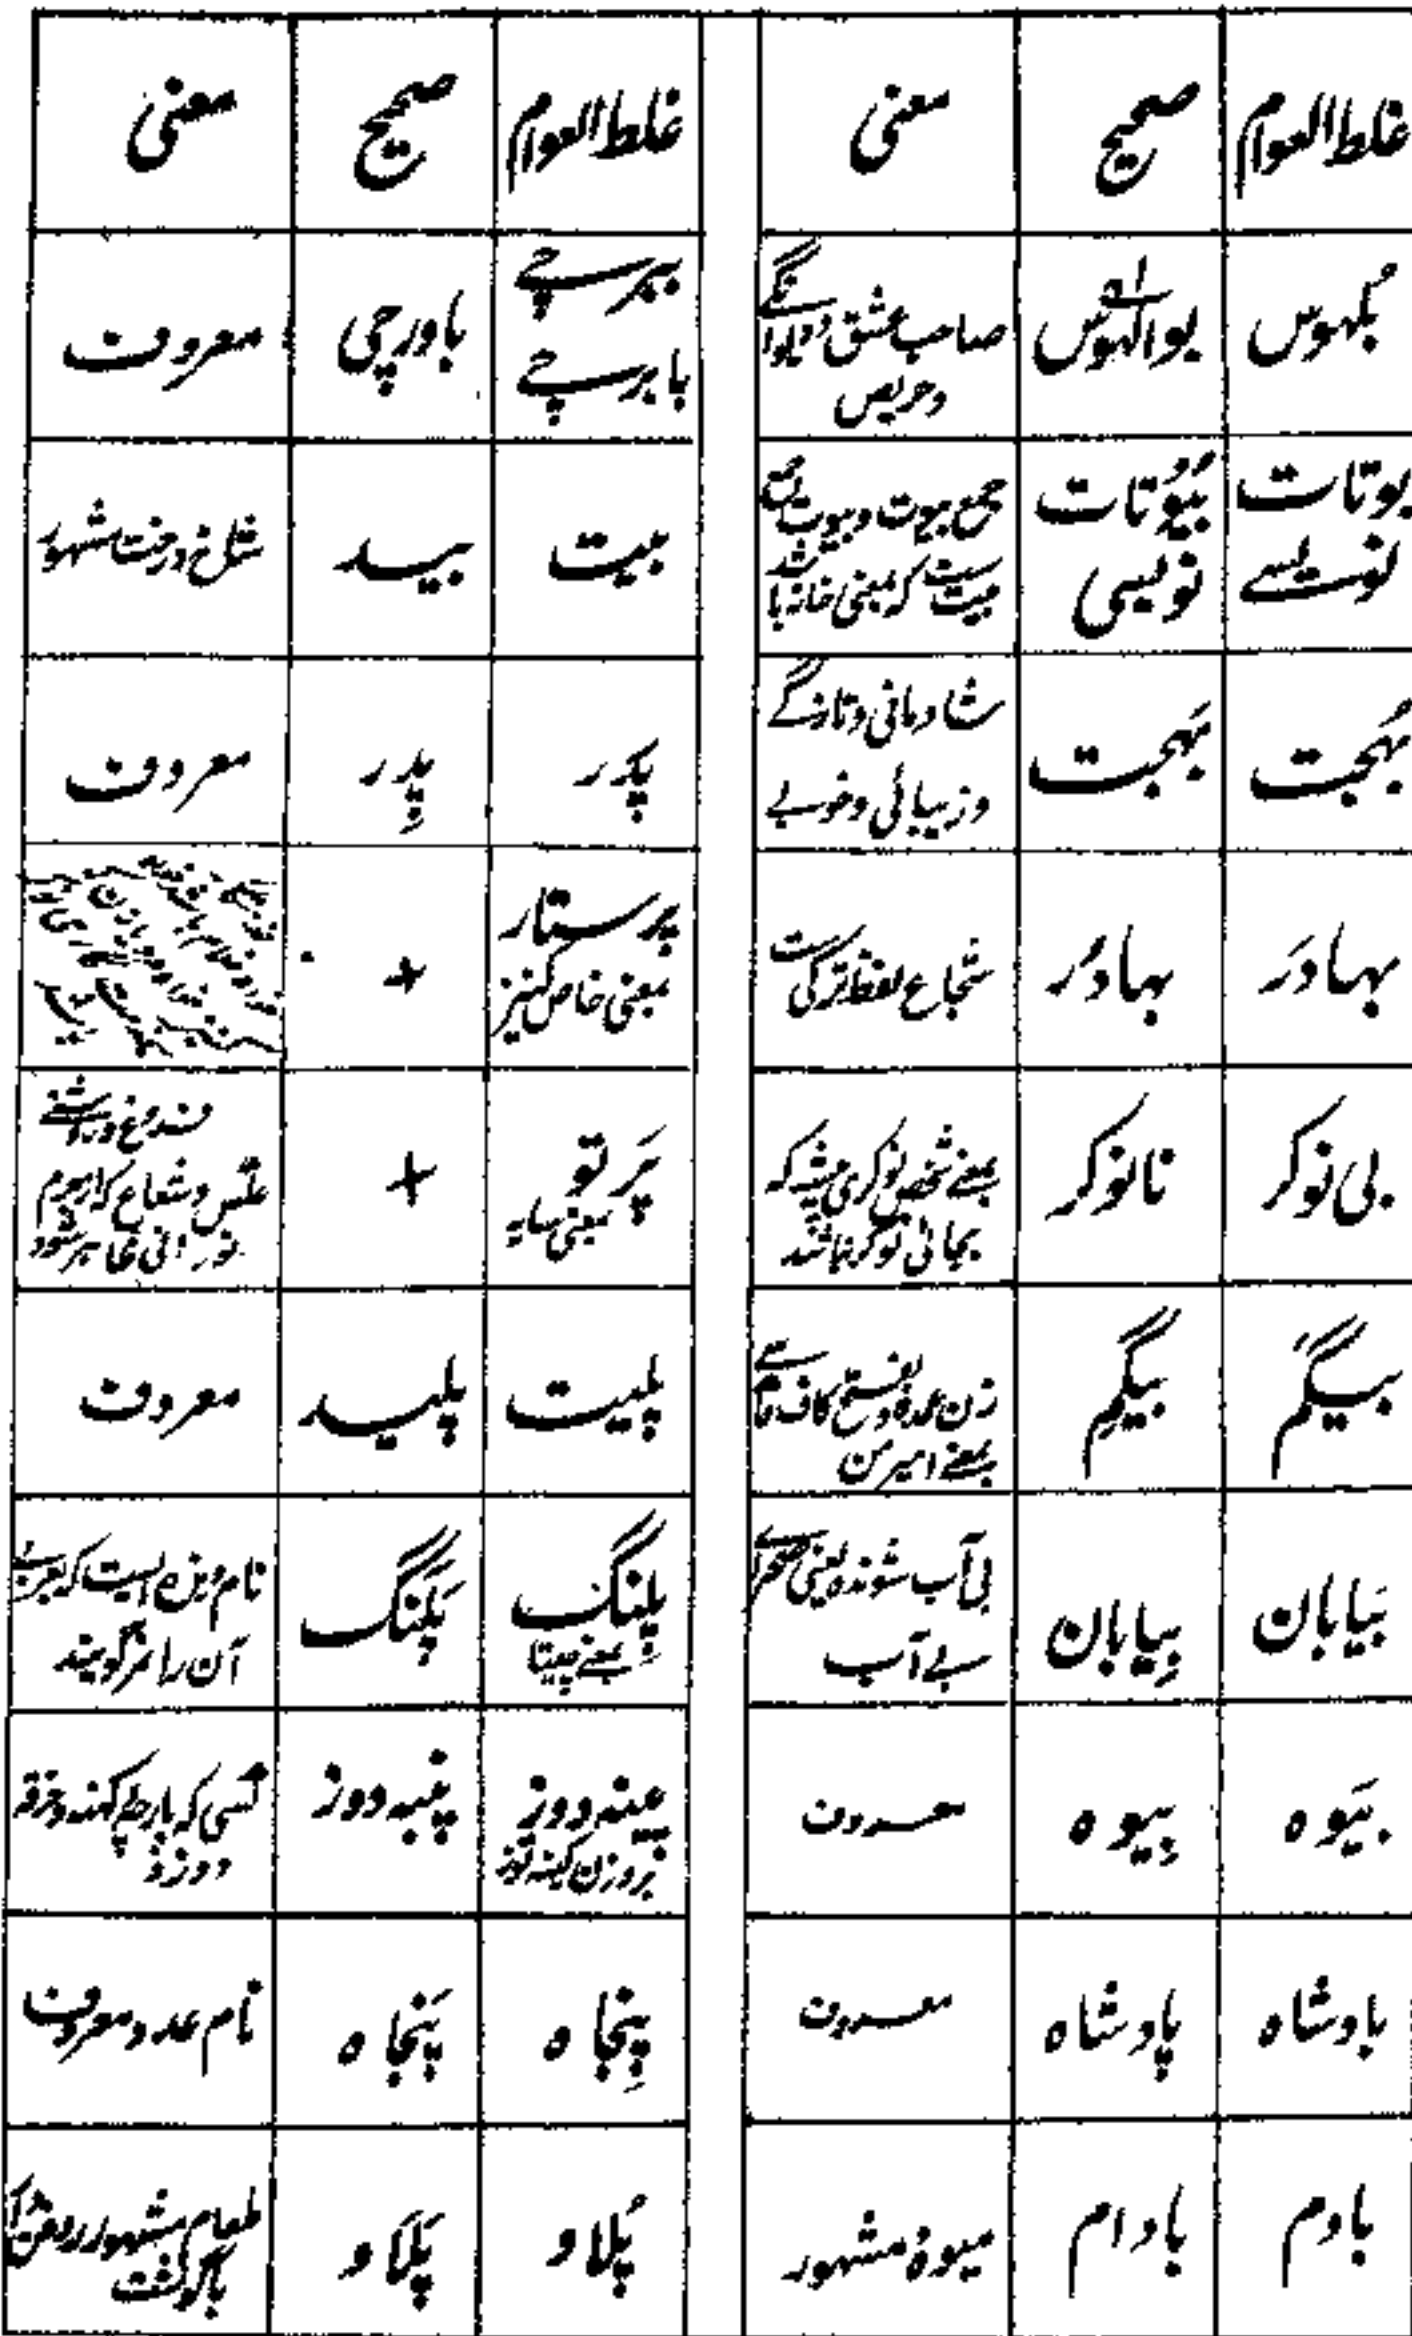 غلط العوام | صحیح | معنی
بُلہوس | بوالہوس | صاحب عشق و دیوانگے وحریص
بوتات نویسے | بُیُوتات نویسی | جمع بیوت و بیوت جمع بیت ست کہ بمعنی خانہ باشد
بُہجت | بَہجت | شادمانی و تازگے و زیبائی و خوبے
بہادَر | بہادُر | شجاع لفظ ترکی ست
بی نوکر | نانوکر | بمعنے شخصی نوکری پیشہ کہ بجائی نوکر نباشد
بیگَم | بیگِم | زن عمدہ و بفتح کاف بمعنے امیر من
بَیابان | بِیابان | بی آب شوندہ یعنی صحرائے بے آب
بَیوہ | بِیوہ | معروف
بادشاہ | پادشاہ | معروف
بادم | بادام | میوۂ مشہور
غلط العوام | صحیح | معنی
ببرچے بابرچے | باورچی | معروف
بیت | بید | شاخ درخت مشہور
پَدر | پِدر | معروف
پرستار بمعنی خاص کنیز | +
پَرتو بمعنی سایہ | + | فروغ و روشنے عکس و شعاع کہ از جرم نورانی ظاہر شود
پلیت | پلید | معروف
پِلنگ بمعنے چیتا | پَلَنگ | نام درندہ ایست کہ بعربے آن را نمر گویند
پینہ دوز بر وزن کینہ توز | پنبہ دوز | کسی کہ پارچہ کہنہ و خرقہ دوزد
پِنجاہ | پَنجاہ | نام عدد معروف
پُلاو | پَلاو | طعام مشہور باگوشت